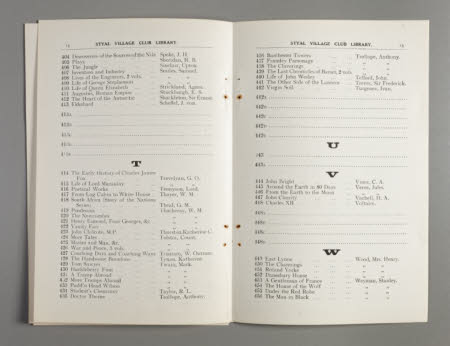 14 STYAL VILLAGE CLUB LIBRARY.
404 Discoveries of the Sources of the Nile Speke, J. H.
405 Plays Sheridan, R. B.
406 The Jungle Sinclair, Upton.
407 Invention and Industry Smiles, Samuel.
408 Lives of the Engineers, 2 vols. " "
409 Life of George Stephenson " "
410 Life of Queen Elizabeth Strickland, Agnes.
411 Augustus, Roman Empire Shuckburgh, E. S.
412 The Heart of the Antarctic Shackleton, Sir Ernest
413 Ekkehard Scheffel, J. von.
T
414 The Early History of Charles James
Fox Trevelyan, G. O.
415 Life of Lord Macaulay " "
416 Poetical Works Tennyson, Lord.
417 From Log Cabin to White House Thayer, W. M.
418 South Africa (Story of the Nations
Series) Theal, G. M.
419 Pendennis Thackeray, W. M.
420 The Newcomes " "
421 Henry Esmond, Four Georges, &c. " "
422 Vanity Fair " "
423 John Chilcote, M.P. Thurston, Katherine C.
424 More Tales Tolstoi, Count.
425 Master and Man, &c. " "
426 War and Peace, 3 vols. " "
427 Coaching Days and Coaching Ways Tristram, W. Outram.
428 The Honorary Tynan, Katharine
429 Tom Sawyer Twain, Mark.
430 Huckleberry Finn " "
431 A Tramp Abroad " "
432 More Tramps Abroad " "
433 Pudd'n Head Wilson " "
434 Student's Chemistry Taylor, R. L.
435 Doctor Thorne Trollope, Anthony.
STYAL VILLAGE CLUB LIBRARY. 15
436 Barchester Towers Trollope, Anthony.
437 Framley Parsonage " "
438 The Claverings " "
439 The Last Chronicles of Barset, 2 vols. " "
440 Life of John Wesley Telford, John.
441 The Other Side of the Lantern Treves, Sir Frederick.
442 Virgin Soil Turgenev, Ivan.
U
443
V
444 John Bright Vince, C. A.
445 Around the Earth in 80 Days Verne, Jules.
446 From the Earth to the Moon " "
447 John Charity Vachell, H. A.
448 Charles XII Voltaire.
W
449 East Lynne Wood, Mrs. Henry.
450 The Channings " "
451 Roland Yorke " "
452 Danesbury House " "
453 A Gentleman of France Weyman, Stanley.
454 The House of the Wolf " "
455 Under the Red Robe " "
456 The Man in Black " "